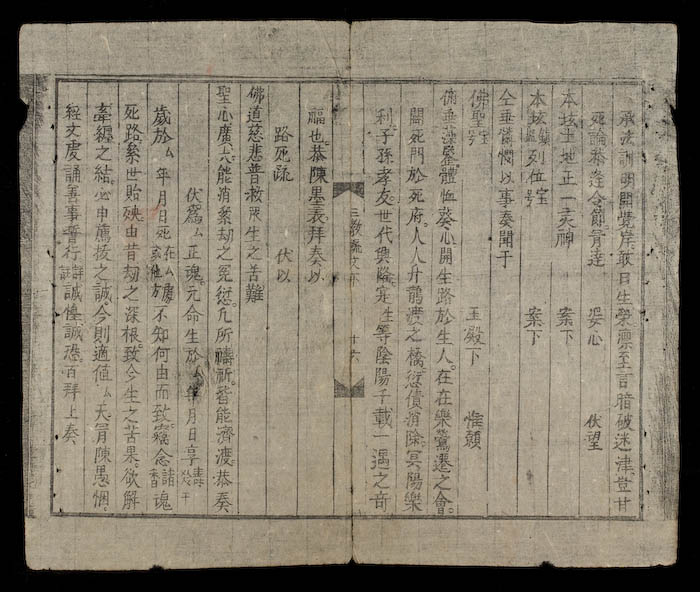 承法訓明開覺岸敢曰生榮稟至言暗破迷津豈甘
死論恭逢令節脊達 姿心 伏望
本垓土地正一灵神 案下
本垓列位 案下
仝垂憐憫以事奏聞于
佛聖 玉殿下 惟願
俯垂藻鑒體恤葵心開生路於生人。在在樂鶯遷之會。
閉死門於死府。人人升鶴渡之橋。愆債消除。冥陽樂
利。子孫孝友。世代興隆。寔生等陰陽千載一遇之奇
三教疏文 十六
福也。恭陳墨表拜奏以
路死疏 伏以
佛道慈悲普救衆生之苦難
聖心廣大能消累劫之冤愆凡所禱祈皆能濟渡恭奏
伏爲厶正魂。元命生於厶年月日享
歲於厶年月日死 不知何由而致。窃念諸魂
死路。累世貽殃。由昔劫之深根。致今生之苦果。欲解
牽纏之結。必申薦拔之誠。今則適值厶天脊陳愚悃。
經文虔誦善事誓行 誠惶誠恐。百拜上奏